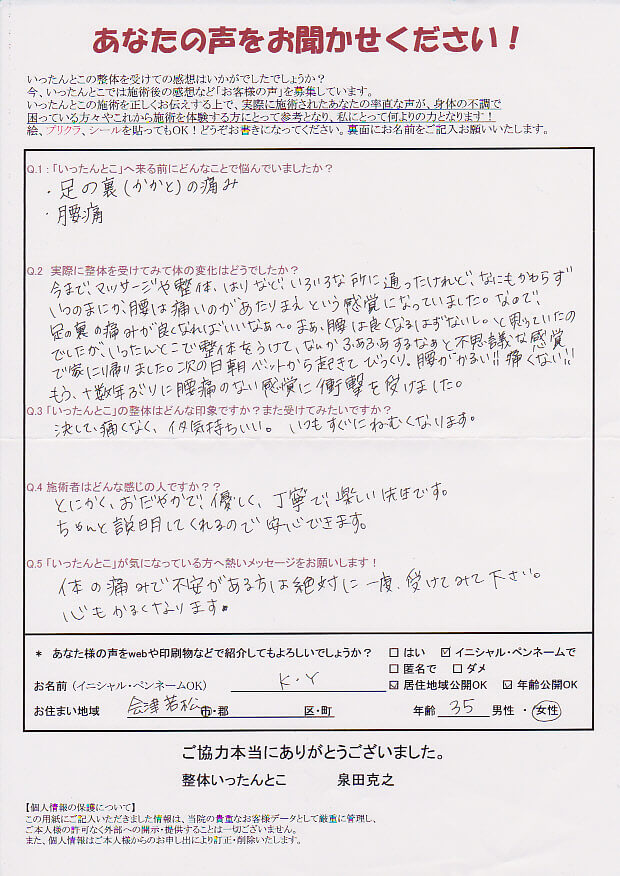 あなたの声をお聞かせください！
いったんとこの整体を受けての感想はいかがでしたでしょうか？
今、いったんとこでは施術後の感想など「お客様の声」を募集しています。
いったんとこの施術を正しくお伝えする上で、実際に施術されたあなたの率直な声が、身体の不調で
困っている方々やこれから施術を体験する方にとって参考となり、私にとって何よりの力となります！
絵、プリクラ、シールを貼ってもOK！どうぞお書きになってください。裏面にお名前をご記入お願いいたします。
Q.1：「いったんとこ」へ来る前にどんなことで悩んでいましたか？
・足の裏(かかと)の痛み
・腰痛
Q.2 実際に整体を受けてみて体の変化はどうでしたか？
今まで、マッサージや整体、はりなど、いろいろな所に通ったけれど、なにもかわらず
いつのまにか、腰は痛いのがあたりまえという感覚になっていました。なので、
足の裏の痛みが良くなればいいなぁ〜。まぁ、腰は良くなるはずないし。と思っていたの
でしたが、いったんとこで整体をうけて、なんかふあふあするなぁと不思議な感覚
で家に帰りました。次の日朝ベットから起きてびっくり。腰がかるい!!痛くない!!
もう、十数年ぶりに腰痛のない感覚に衝撃を受けました。
Q.3「いったんとこ」の整体はどんな印象ですか？また受けてみたいですか？
決して痛くなく、イタ気持ちいい。いつもすぐにねむくなります。
Q.4 施術者はどんな感じの人ですか？？
とにかく、おだやかで、優しく、丁寧で、楽しい先生です。
ちゃんと説明してくれるので安心できます。
Q.5「いったんとこ」が気になっている方へ熱いメッセージをお願いします！
体の痛みで不安がある方は絶対に一度、受けてみて下さい。
心もかるくなります。
* あなた様の声をwebや印刷物などで紹介してもよろしいでしょうか？ □はい ☑イニシャル・ペンネームで
□匿名で □ダメ
お名前（イニシャル・ペンネームOK） K・Y ☑居住地域公開OK ☑年齢公開OK
お住まい地域 会津若松 市・郡 区・町 年齢 35 男性・女性
ご協力本当にありがとうございました。
整体いったんとこ 泉田克之
【個人情報の保護について】
この用紙にご記入いただきました情報は、当院の貴重なお客様データとして厳重に管理し、
ご本人様の許可なく外部への開示・提供することは一切ございません。
また、個人情報はご本人様からのお申し出により訂正・削除いたします。